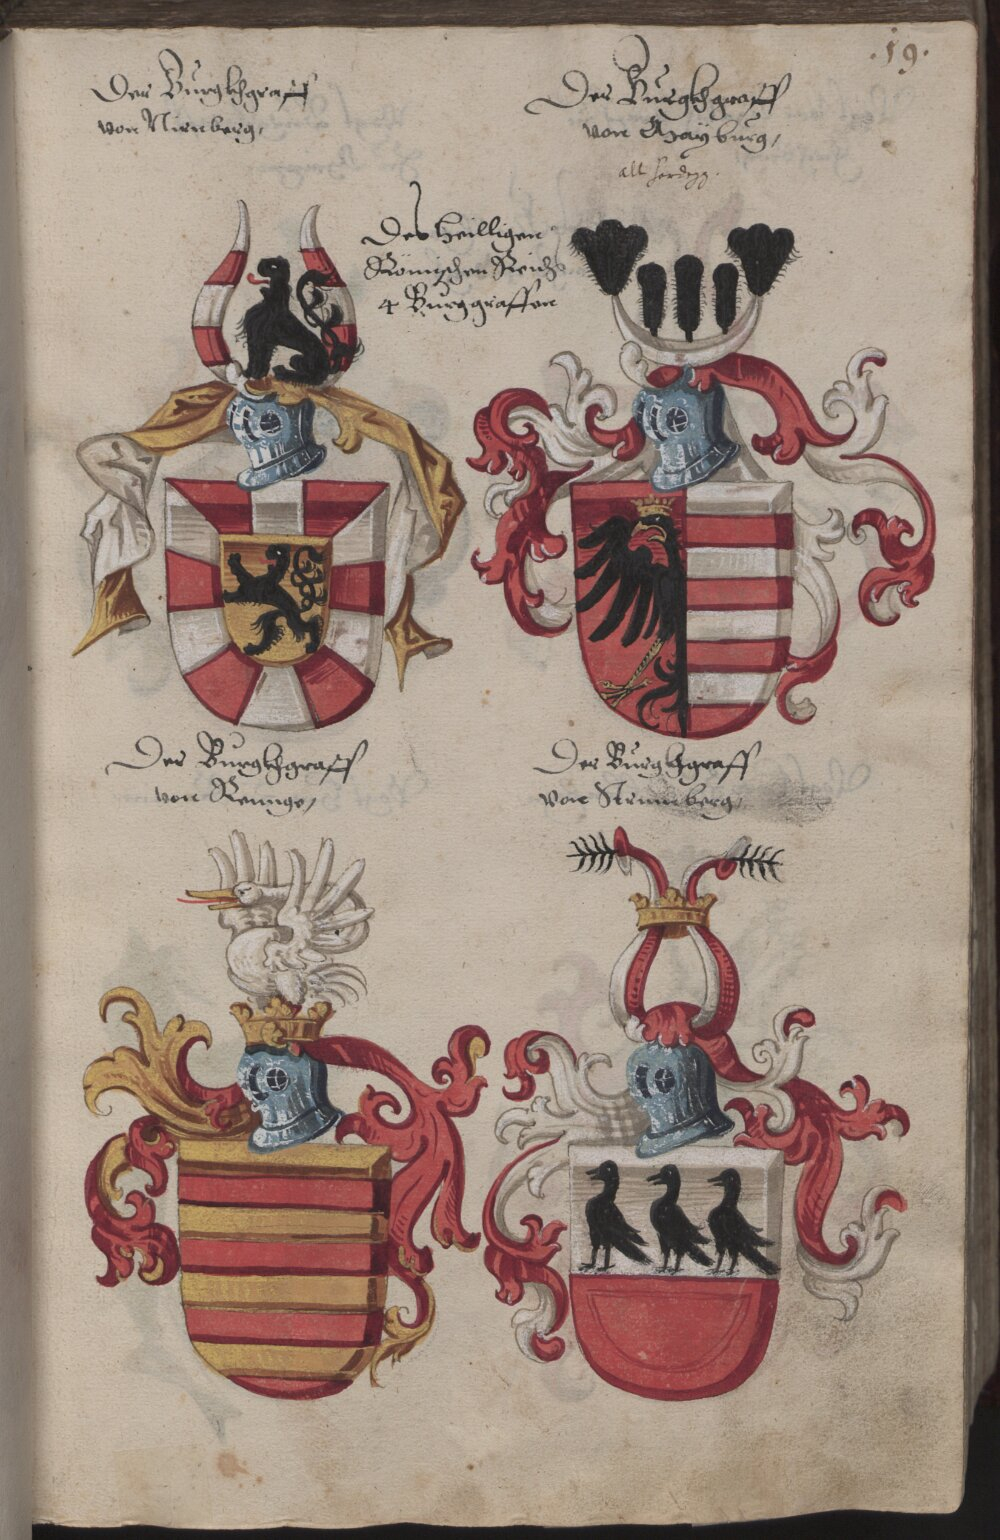 .19.
Der Burgkhgraff
von Nirnberg,
Der Burgkhgraff
von Mayburg,
alt hardegg.
Des heilligen
Römischen Reichs
4 Burggraffen
Der Burgkhgraff
von Reinnge,
Der Burgkhgraff
von Strumberg,